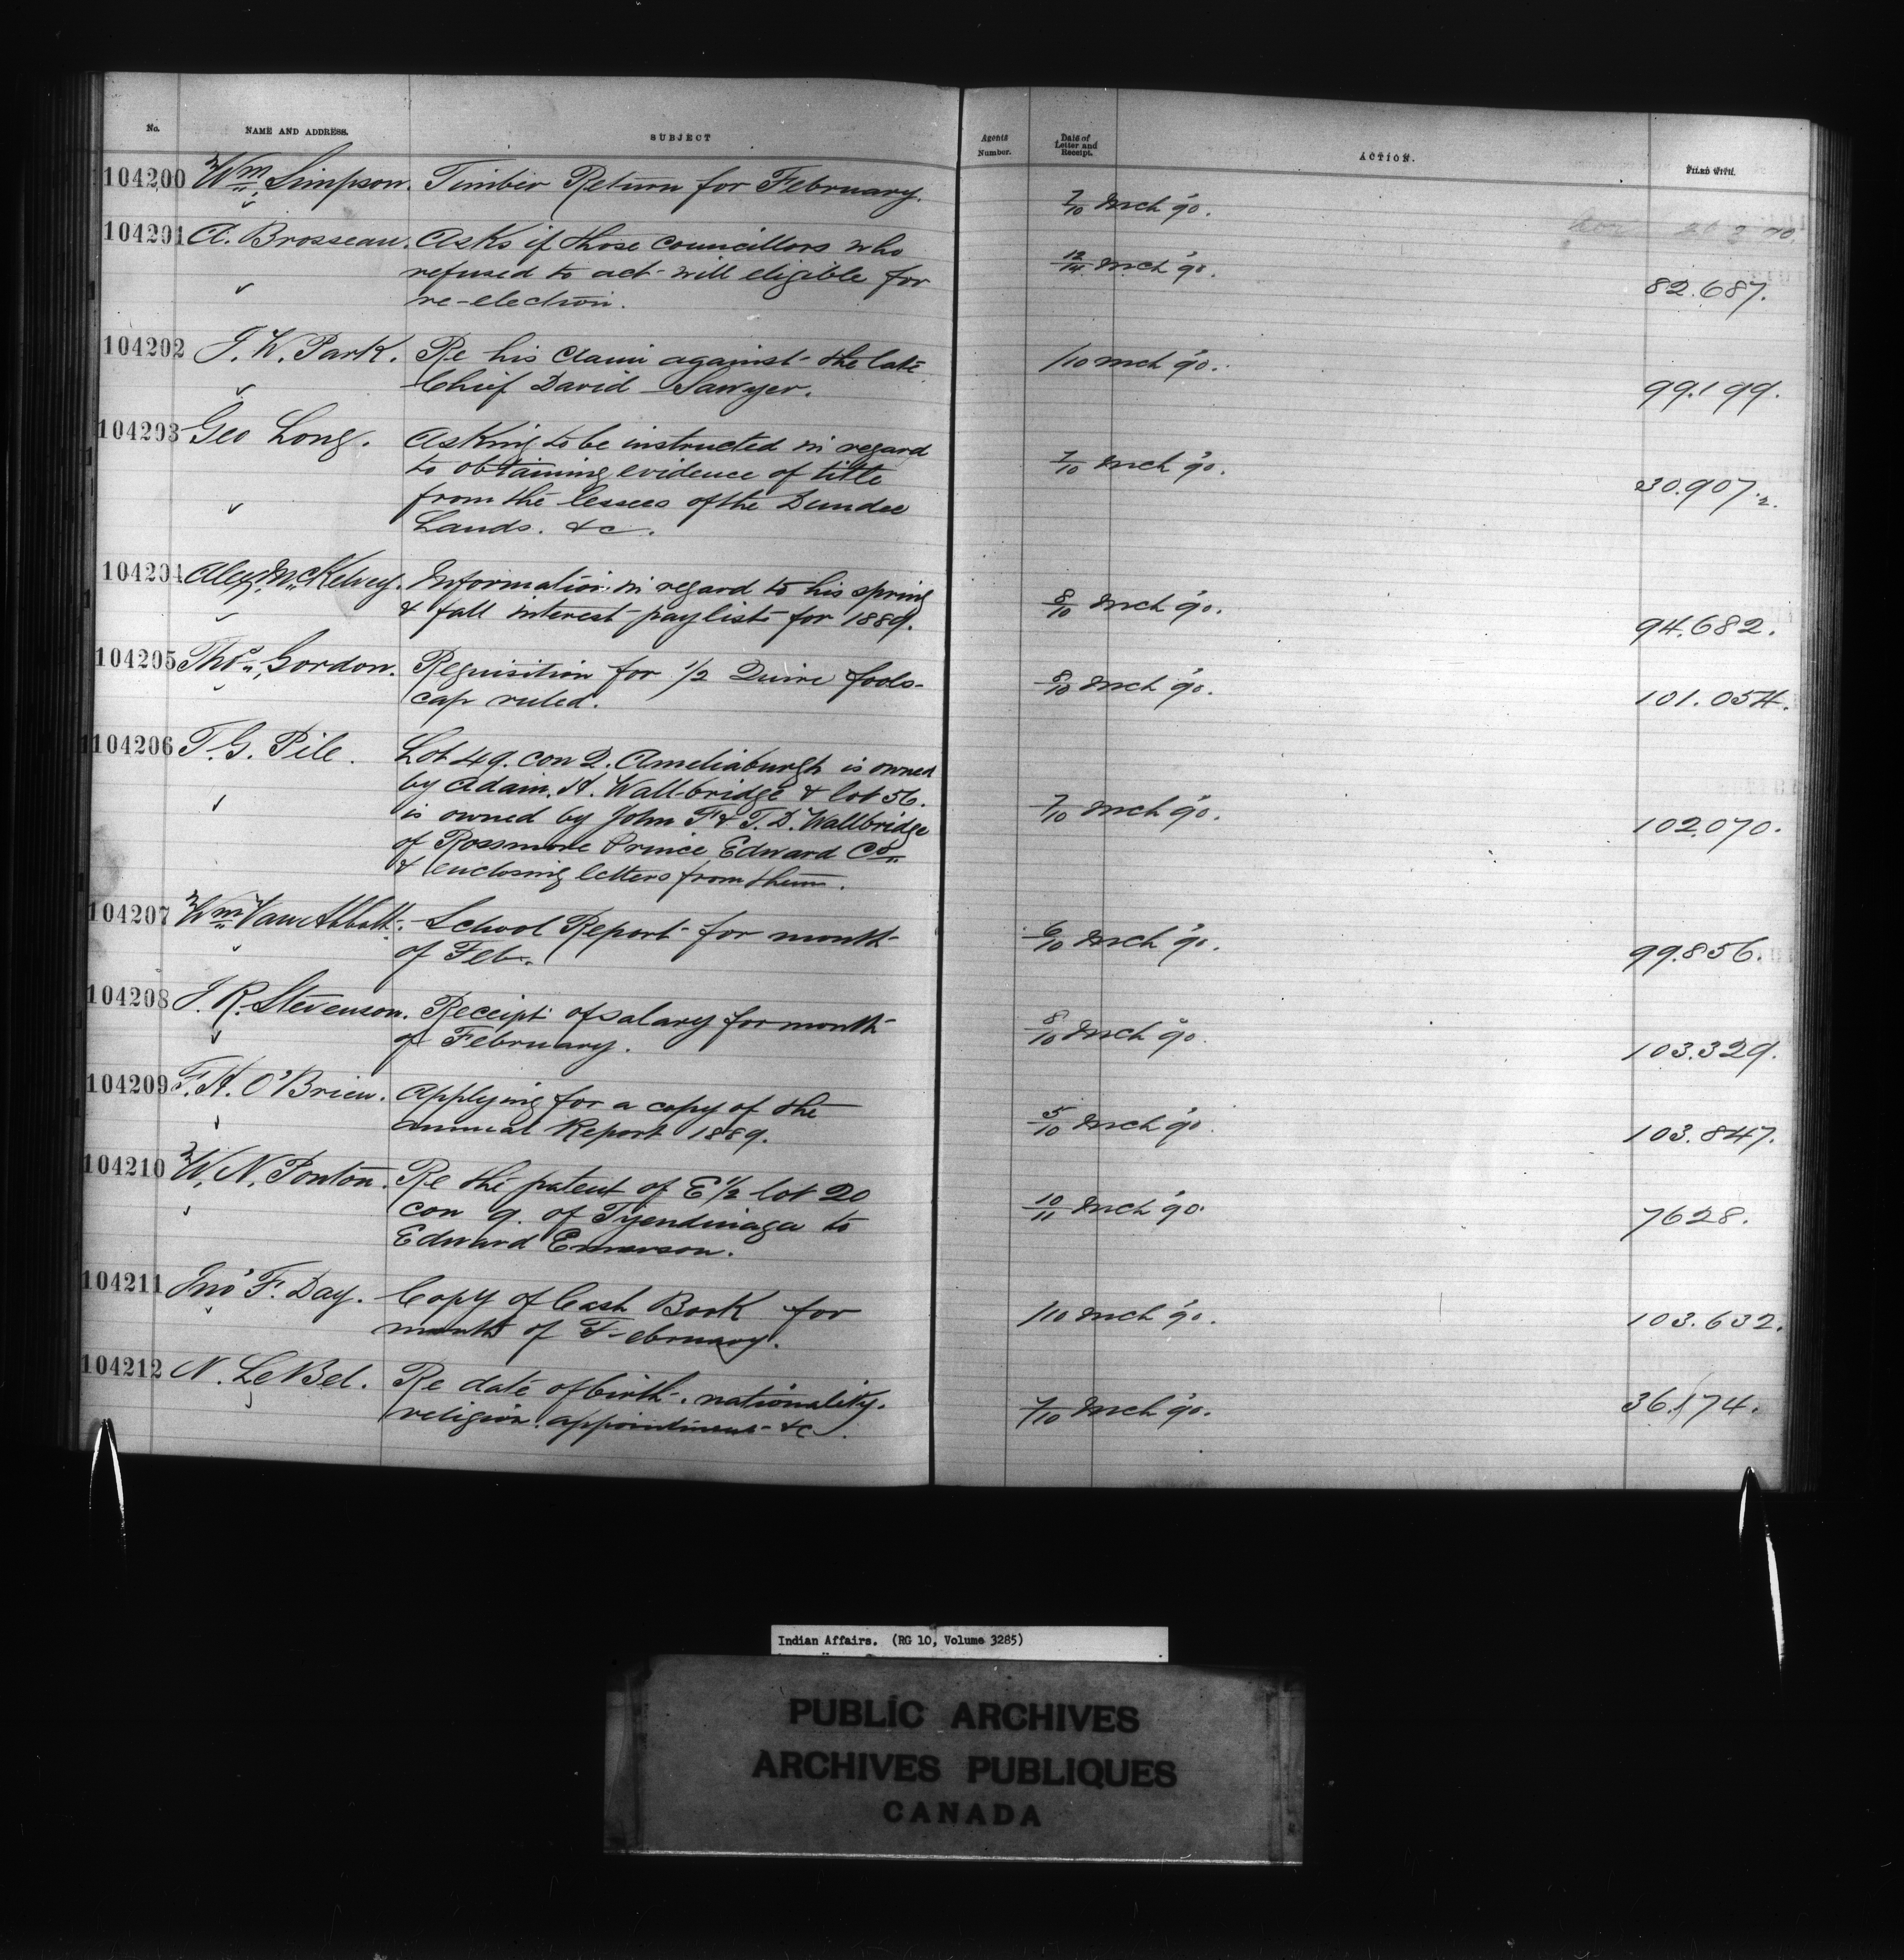 No. NAME AND ADDRESS. SUBJECT Agents Number. Date of Letter and Receipt. ACTION. FILED WITH.
104200 Wm. Simpson. Timber Return for February. 7/10 Mch '90.
104201 A. Brosseau. Asks if those councillors who 12/14 Mch '90. 82.687.
refused to act will eligible for
re-election.
104202 J. W. Park. Re his Claim against the late /10 Mch '90. 99.199.
Chief David Sawyer.
104203 Geo Long. Asking to be instructed in regard 7/10 Mch '90. 30.907.2.
to obtaining evidence of title
from the lessees of the Dundee
Lands. &c.
104204 Alex. McKelvey. Information in regard to his spring 8/10 Mch '90. 94.682.
& fall interest paylists for 1889.
104205 Thos. Gordon. Requisition for 1/2 Quire fools- 8/10 Mch '90. 101.054.
cap ruled.
104206 T. G. Pile. Lot 49. con 2. Ameliaburgh is owned 7/10 Mch '90. 102.070.
by Adam. H. Wallbridge & lot 56.
is owned by John F & T. D. Wallbridge
of Rossmore Prince Edward Co.
& enclosing letters from them.
104207 Wm Van Abbott. School Report for month 6/10 Mch '90. 99.856.
of Feb.
104208 J. R. Stevenson. Receipt of salary for month 8/10 Mch '90. 103.329.
of February.
104209 F. H. O'Brien. Applying for a copy of the 5/10 Mch '90. 103.847.
annual Report 1889.
104210 W. N. Ponton. Re the patent of E 1/2 lot 20 10/11 Mch '90. 7628.
con 9. of Tyendinaga to
Edward Emerson.
104211 Jno F. Day. Copy of Cash Book for /10 Mch '90. 103.632.
month of February.
104212 N. LeBel. Re date of birth, nationality, 7/10 Mch '90. 36.174.
religion, appointment &c.
Indian Affairs. (RG 10, Volume 3285)
PUBLIC ARCHIVES
ARCHIVES PUBLIQUES
CANADA